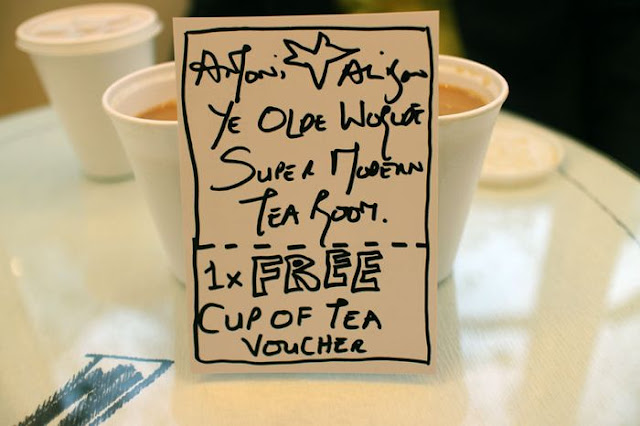 Antoni Alison
Ye Olde Worlde
Super Modern
Tea Room.
1x FREE
Cup of Tea
Voucher